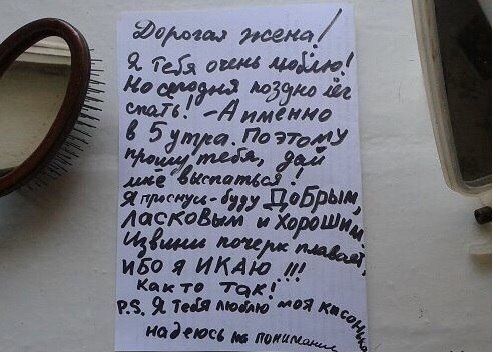 Дорогая жена!
Я тебя очень люблю!
Но сегодня поздно лёг
спать! - А именно
в 5 утра. Поэтому
прошу тебя, дай
мне выспаться!
Я проснусь - буду Добрым,
ласковым и хорошим.
Извини почерк плавает,
ибо я ИКАЮ !!!
Как то так!
P.S. Я тебя люблю моя кисонька
надеюсь на понимание